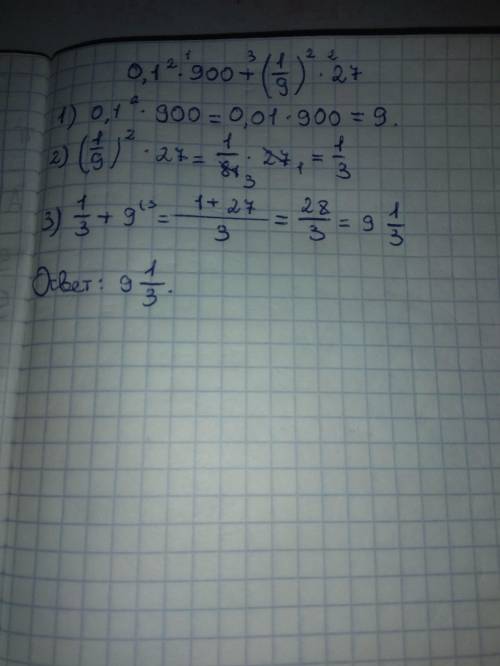 0,1² ·¹ 900 +³ (1/9)² ·² 27
1) 0,1² · 900 = 0,01 · 900 = 9.
2) (1/9)² · 27 = 1/81 3 · 27 1 = 1/3
3) 1/3 + 9⁽³ = 1 + 27/3 = 28/3 = 9 1/3
Ответ: 9 1/3.